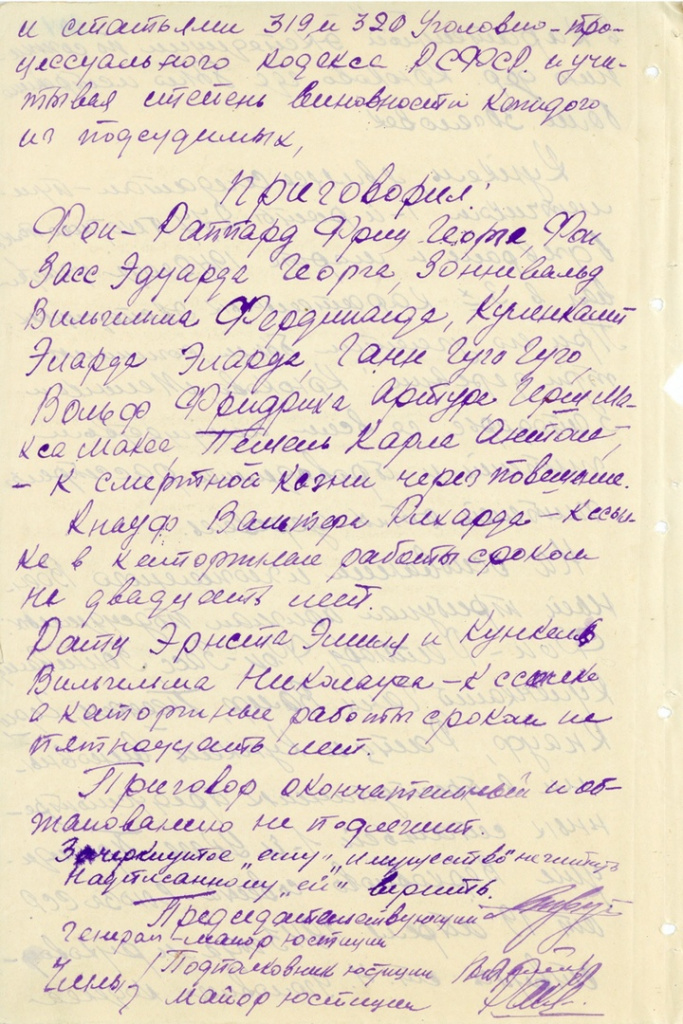 и статьями 319 и 320 Уголовно-про-
цессуального Кодекса РСФСР. и учи-
тывая степень виновности каждого
из подсудимых,
Приговорил:
Фон-Раппард Фриц Георга, Фон
Засс Эдуарда Георга, Зонневальд
Вильгельма Фердинанда, Куленкамп
Эларда Эларда, Ганн Гуго Гуго,
Вольф Фридриха Артура Герц Ма-
кса Макса, Пешель Карла Антон,
- к смертной казни через повешение.
Кнауф Вальтера Рихарда - к ссыл-
ке в каторжные работы сроком
на двадцать лет.
Рату Эрнста Эмиля и Кункель
Вильгельма Николауса - к ссылке
в каторжные работы сроком на
пятнадцать лет.
Приговор окончательный и об-
жалованию не подлежит.
Зачеркнутое "ему", "имущество" не читать
Надписанному "ей" верить.
Председательствующий
Генерал-майор юстиции
Члены Подполковник юстиции
майор юстиции